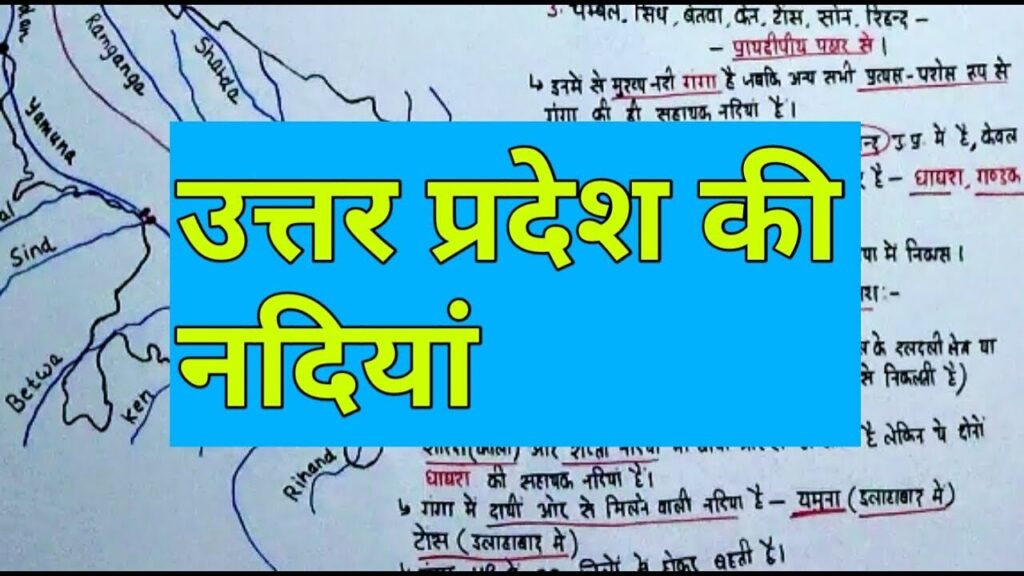 Ramganga
Sharda
Yamuna
Sind
Betwa
Ken
Rihand
3. चम्बल, सिंध, बेतवा, केन, टोंस, सोन, रिहन्द –
– प्रायद्वीपीय पठार से।
↳ इनमें से मुख्य नदी गंगा है जबकि अन्य सभी प्रत्यक्ष-परोक्ष रूप से
गंगा की ही सहायक नदियां हैं।
उ.प्र. में है, केवल
है – घाघरा, गण्डक
उत्तर प्रदेश की
नदियां
में निकास।
के दलदली क्षेत्र या
से निकलती है)
है लेकिन ये दोनों
शारदा(काली) और
घाघरा की सहायक नदियां हैं।
↳ गंगा में दायीं ओर से मिलने वाली नदियां है – यमुना (इलाहाबाद में)
टोंस (इलाहाबाद में)
होकर बहती है।